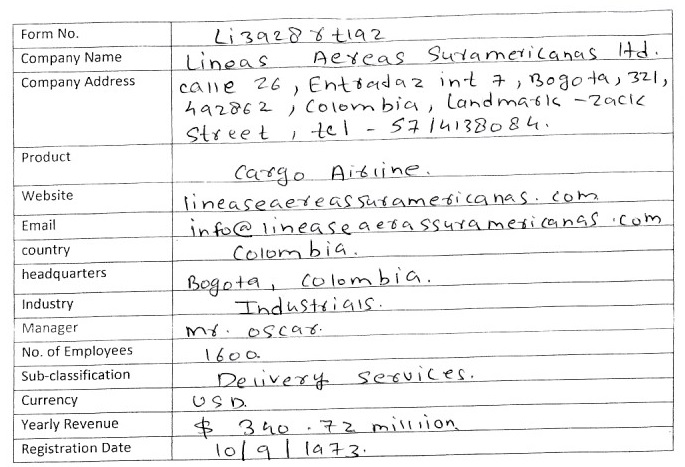 Form No. Li3928rt192
Company Name Lineas Aereas Suramericanas ltd.
Company Address calle 26, Entrada2 int 7, Bogota, 321,
492862, Colombia, Landmark - Zack
Street, tel - 5714138084.
Product Cargo Airline.
Website lineaseaereassuramericanas.com
Email info@lineaseaerassuramericanas.com
country Colombia.
headquarters Bogota, Colombia.
Industry Industrials.
Manager mr. oscar.
No. of Employees 1600
Sub-classification Delivery Services.
Currency USD.
Yearly Revenue $ 340.72 million
Registration Date 10/9/1973.